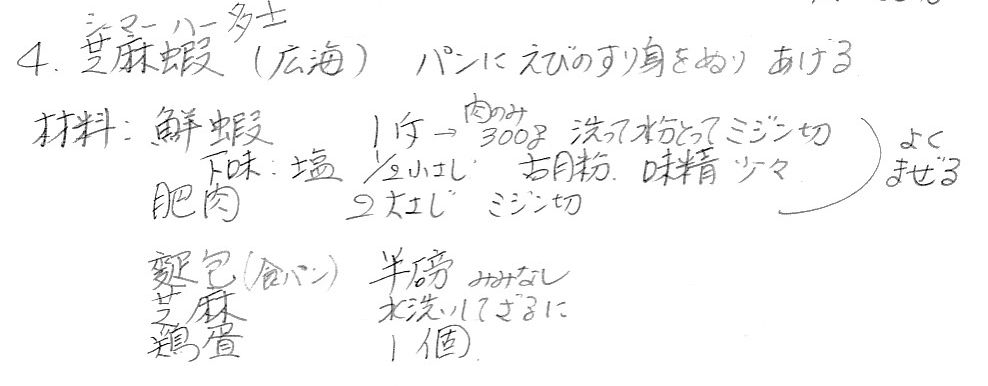 シーマーハー
4. 芝麻蝦多士 (広海) パンにえびのすり身をぬり あげる
材料: 鮮蝦 1斤→肉のみ300g 洗って水分とってミジン切
下味: 塩 1/2小さじ 古月粉. 味精 少々
よくまぜる
肥肉 2大さじ ミジン切
麺包(食パン) 半磅 みみなし
芝麻 水洗いしてざるに
鶏蛋 1個